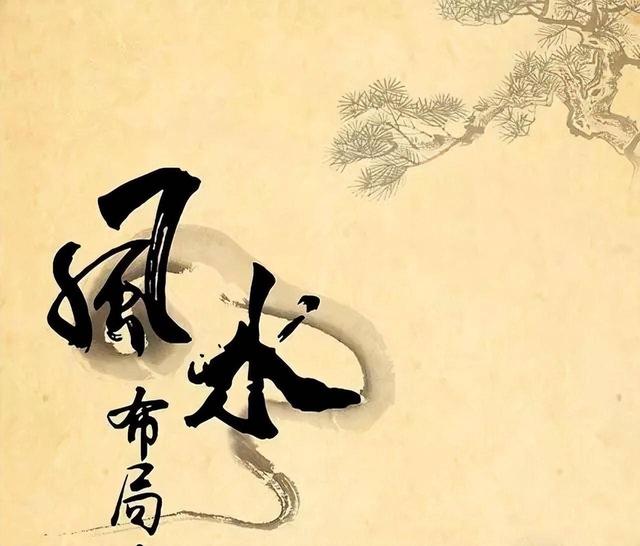 風水
布局